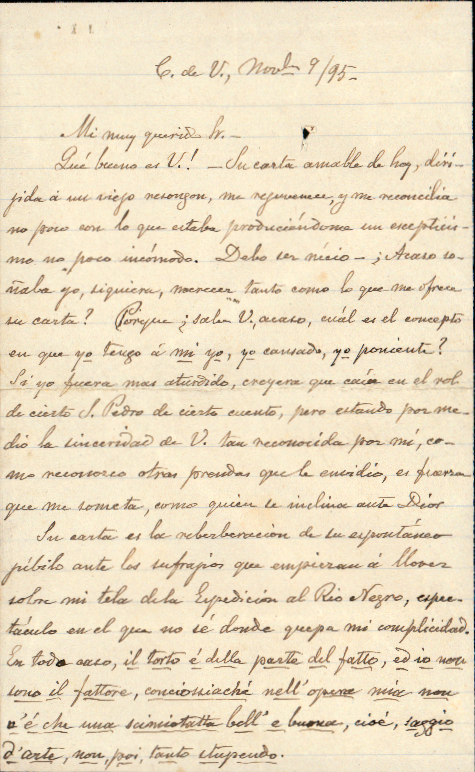 C. de V., Novbre 9/95-
Mi muy querido Sr. -
Qué bueno es V.! - Su carta amable de hoy, diri-
jida á un viejo resongon, me rejuvenece, y me reconcilia
no poco con lo que estaba produciéndome un excepticis-
mo no poco incómodo. Debo ser nécio - ¿Acaso so-
ñaba yo, siquiera, merecer tanto como lo que me ofrece
su carta? Porque ¿sabe V., acaso, cuál es el concepto
en que yo tengo á mi yo, yo cansado, yo poniente?
Si yo fuera mas aturdido, creyera que caía en el rol
de cierto S. Pedro de cierto cuento, pero estando por me-
dio la sinceridad de V. tan reconocida por mí, co-
mo reconozco otras prendas que le envidio, es fuerza
que me someta, como quien se inclina ante Dios
Su carta es la reberberación de su espontáneo
júbilo ante los sufragios que empiezan á llover
sobre mi tela de la Expedición al Rio Negro, espec-
táculo en el que no sé donde quepa mi complicidad.
En todo caso, il torto é della parte del fatto, ed io non
sono il fattore, conciossiaché nell'opera mia non
v'é che una scimiotatta bell'e buona, cioé, saggio
d'arte, non, poi, tanto stupendo.